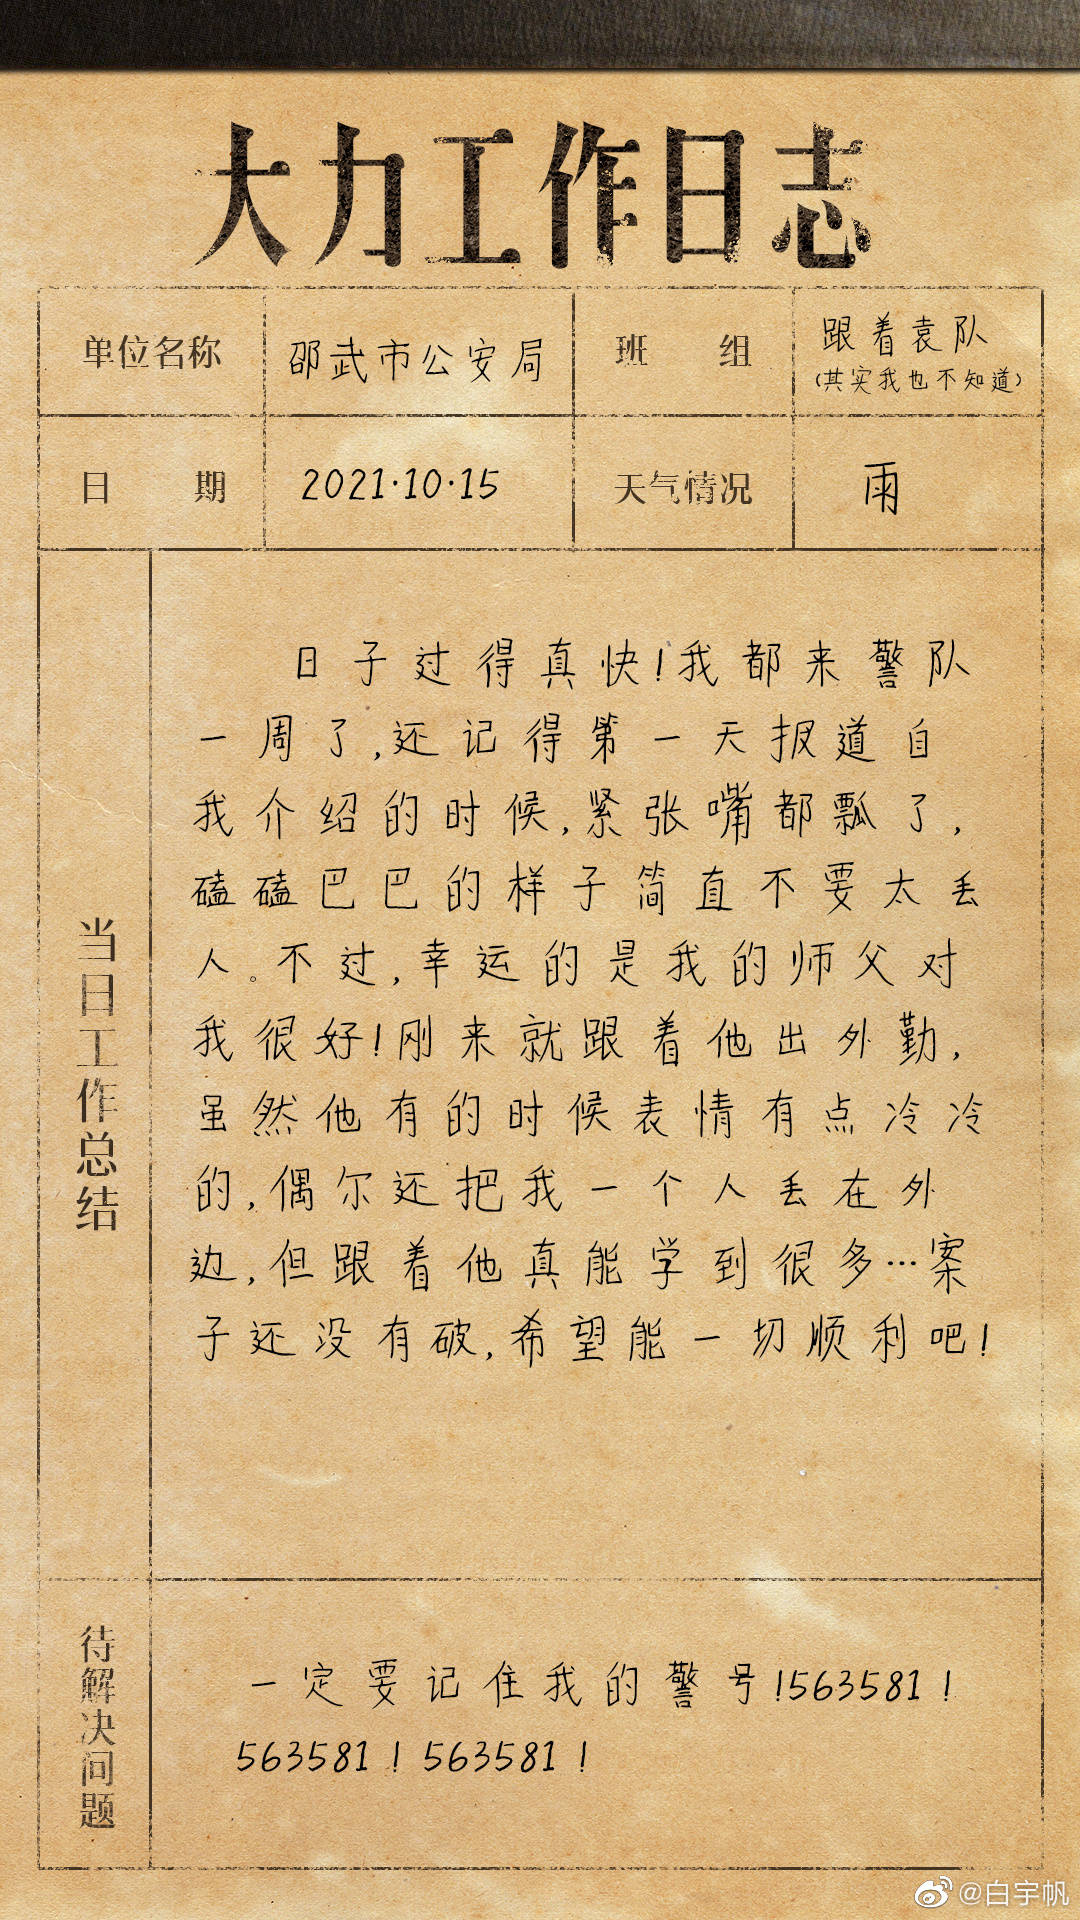 大力工作日志
单位名称 邵武市公安局 班组 跟着袁队
(其实我也不知道)
日期 2021·10·15 天气情况 雨
当日工作总结
日子过得真快!我都来警队
一周了,还记得第一天报道自
我介绍的时候,紧张嘴都瓢了,
磕磕巴巴的样子简直不要太丢
人。不过,幸运的是我的师父对
我很好!刚来就跟着他出外勤,
虽然他有的时候表情有点冷冷
的,偶尔还把我一个人丢在外
边,但跟着他真能学到很多…案
子还没有破,希望能一切顺利吧!
待解决问题
一定要记住我的警号!563581!
563581!563581!
@白宇帆